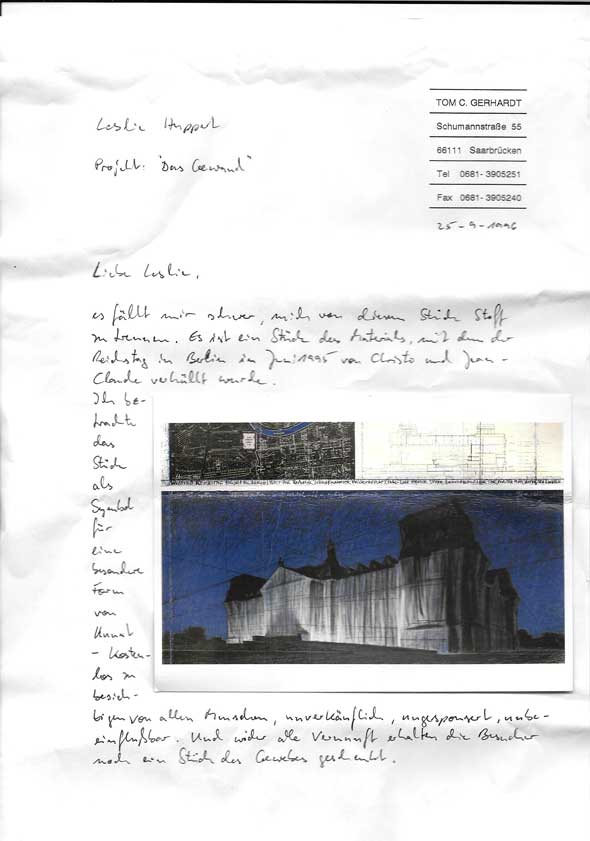 TOM C. GERHARDT
Schumannstraße 55
66111 Saarbrücken
Tel 0681-3905251
Fax 0681-3905240
25-9-1996
Leslie Huppert
Projekt: "Das Gewand"
Liebe Leslie,
es fällt mir schwer, mich von diesem Stück Stoff
zu trennen. Es ist ein Stück des Materials, mit dem der
Reichstag in Berlin im Juni 1995 von Christo und Jean-
Claude verhüllt wurde.
Ich be-
trachte
das
Stück
als
Symbol
für
eine
besondere
Form
von
Kunst
- Kosten-
los zu
besich-
tigen von allen Menschen, unverkäuflich, ungesponsert, unbe-
einflußbar. Und wider alle Vernunft erhalten die Besucher
noch ein Stück des Gewebes geschenkt.